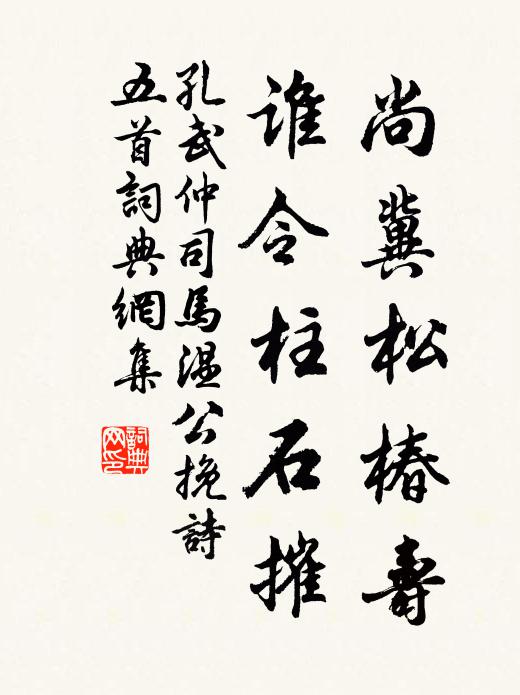 尚冀松椿壽
誰令柱石摧
孔武仲司馬溫公挽詩
五首詞典網集
詞典
网印